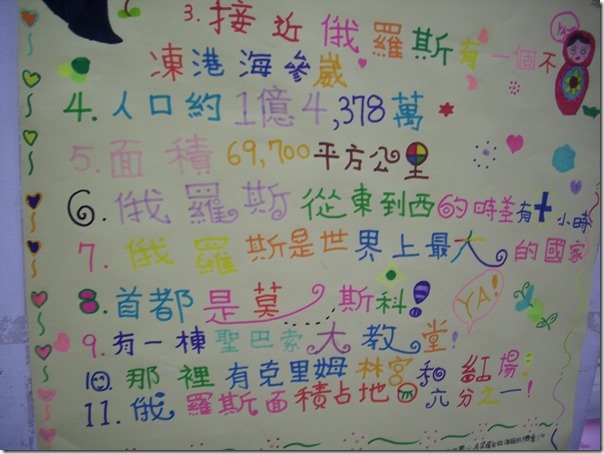 3. 接近俄羅斯有一個不
凍港海參崴
4. 人口約1億4,378萬
5. 面積69,700平方公里
6. 俄羅斯從東到西的時差有十小時
7. 俄羅斯是世界上最大的國家
8. 首都是莫斯科!
YA!
9. 有一棟聖巴索大教堂!
10. 那裡有克里姆林宮和紅場!
11. 俄羅斯面積占地六分之一!